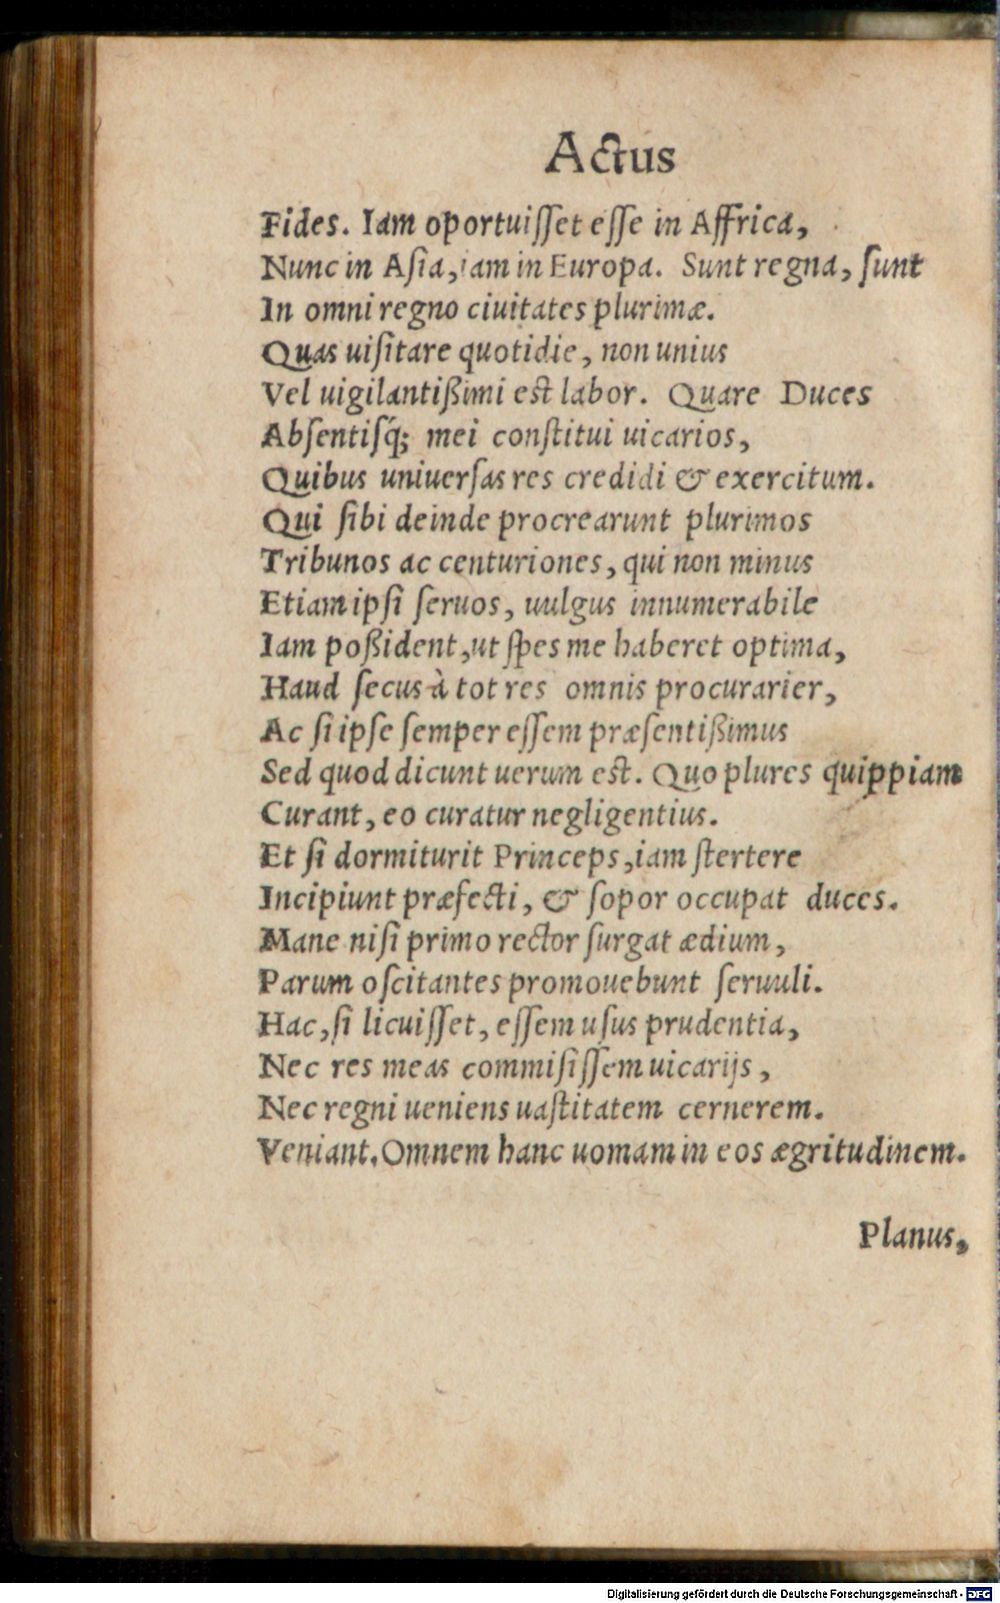 Actus
Fides. Iam oportuiſſet eſſe in Affrica,
Nunc in Aſia, iam in Europa. Sunt regna, ſunt
In omni regno ciuitates plurimæ.
Quas uiſitare quotidie, non unius
Vel uigilantißimi est labor. Quare Duces
Abſentiſq́; mei conſtitui uicarios,
Quibus uniuerſas res credidi & exercitum.
Qui ſibi deinde procrearunt plurimos
Tribunos ac centuriones, qui non minus
Etiam ipſi ſeruos, uulgus innumerabile
Iam poßident, ut ſpes me haberet optima,
Haud ſecus à tot res omnis procurarier,
Ac ſi ipſe ſemper eſſem præſentißimus
Sed quod dicunt uerum est. Quo plures quippiam
Curant, eo curatur negligentius.
Et ſi dormiturit Princeps, iam ſtertere
Incipiunt præfecti, & ſopor occupat duces.
Mane niſi primo rector ſurgat ædium,
Parum oſcitantes promouebunt ſeruuli.
Hac, ſi licuiſſet, eſſem uſus prudentia,
Nec res meas commiſiſſem uicarijs,
Nec regni ueniens uaſtitatem cernerem.
Veniant. Omnem hanc uomam in eos ægritudinem.
Planus,
Digitalisierung gefördert durch die Deutsche Forschungsgemeinschaft - DFG